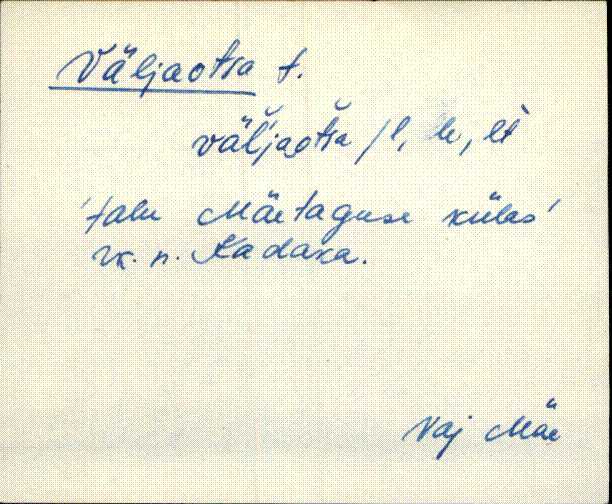 Väljaotsa t.
väĺjaot̆sa /l, le, lt
'talu Mäetaguse külas'
rk. n. Kadaka.
Vaj Mäe